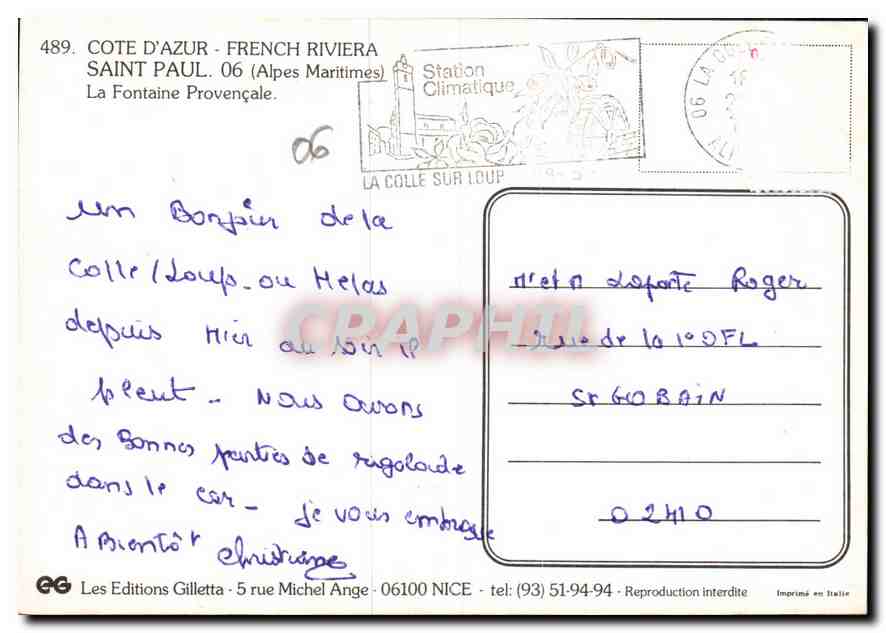 489. COTE D'AZUR - FRENCH RIVIERA
SAINT PAUL. 06 (Alpes Maritimes)
La Fontaine Provençale.
Station
Climatique
LA COLLE SUR LOUP
06 LA
06
un Bonjour de la
Colle/Loup - ou Helas
depuis Hier au soir il
pleut - Nous avons
des Bonnes parties de rigolade
dans le car - je vous embrasse
A Bientôt Christiane
CPAPHIL
Mr et M Laporte Roger
rue de la 1° DFL
St GOBAIN
02410
EG Les Editions Gilletta - 5 rue Michel Ange - 06100 NICE - tel: (93) 51-94-94 - Reproduction interdite
Imprimé en Italie